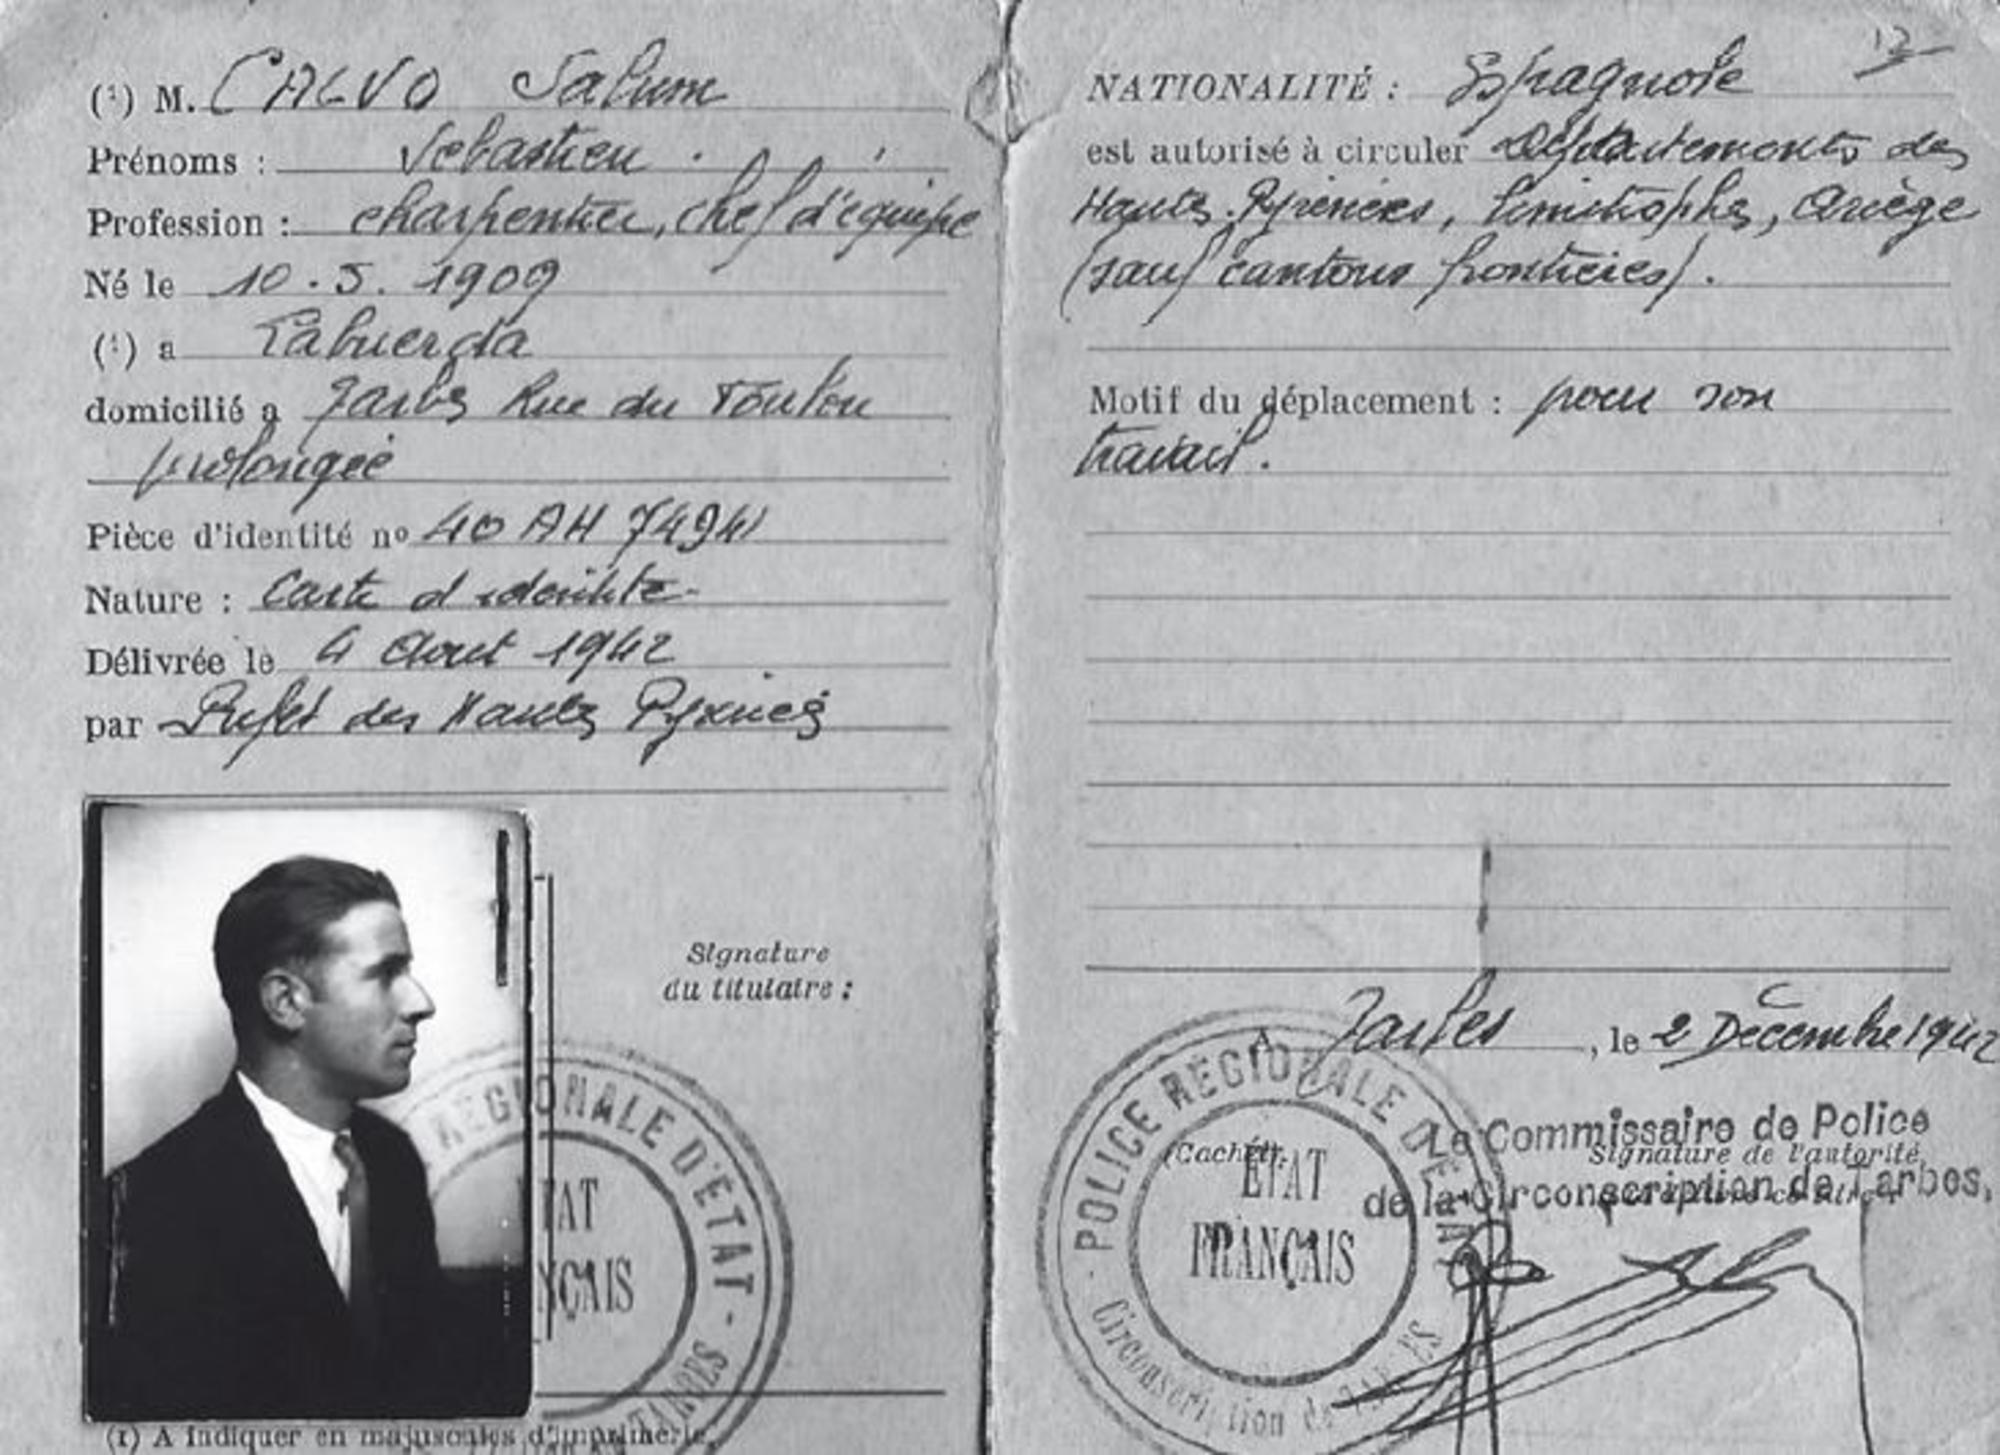 (1) M. CALVO Salum
Prénoms : Sebastien
Profession : charpentier, chef d'équipe
Né le 10.5.1909
(1) a Labuerda
domicilié a Tarbes Rue du Toulou
prolongée
Pièce d'identité nº 40 AH 74941
Nature : Carte d identite
Délivrée le 4 Aout 1942
par Prefet des Hautes Pyrénées
Signature
du titulaire :
RÉGIONALE D'ÉTAT - TARBES
ÉTAT
FRANÇAIS
(1) A indiquer en majuscules d'imprimerie.
12
NATIONALITÉ : Espagnole
est autorisé à circuler Départements des
Hautes-Pyrénées, limitrophes, Ariège
(sauf cantons frontières).
Motif du déplacement : pour son
travail.
A Tarbes, le 2 Décembre 1942
POLICE RÉGIONALE D'ÉTAT
(Cachet).
ÉTAT
FRANÇAIS
Circonscription de TARBES
Le Commissaire de Police
Signature de l'autorité
de la Circonscription de Tarbes,